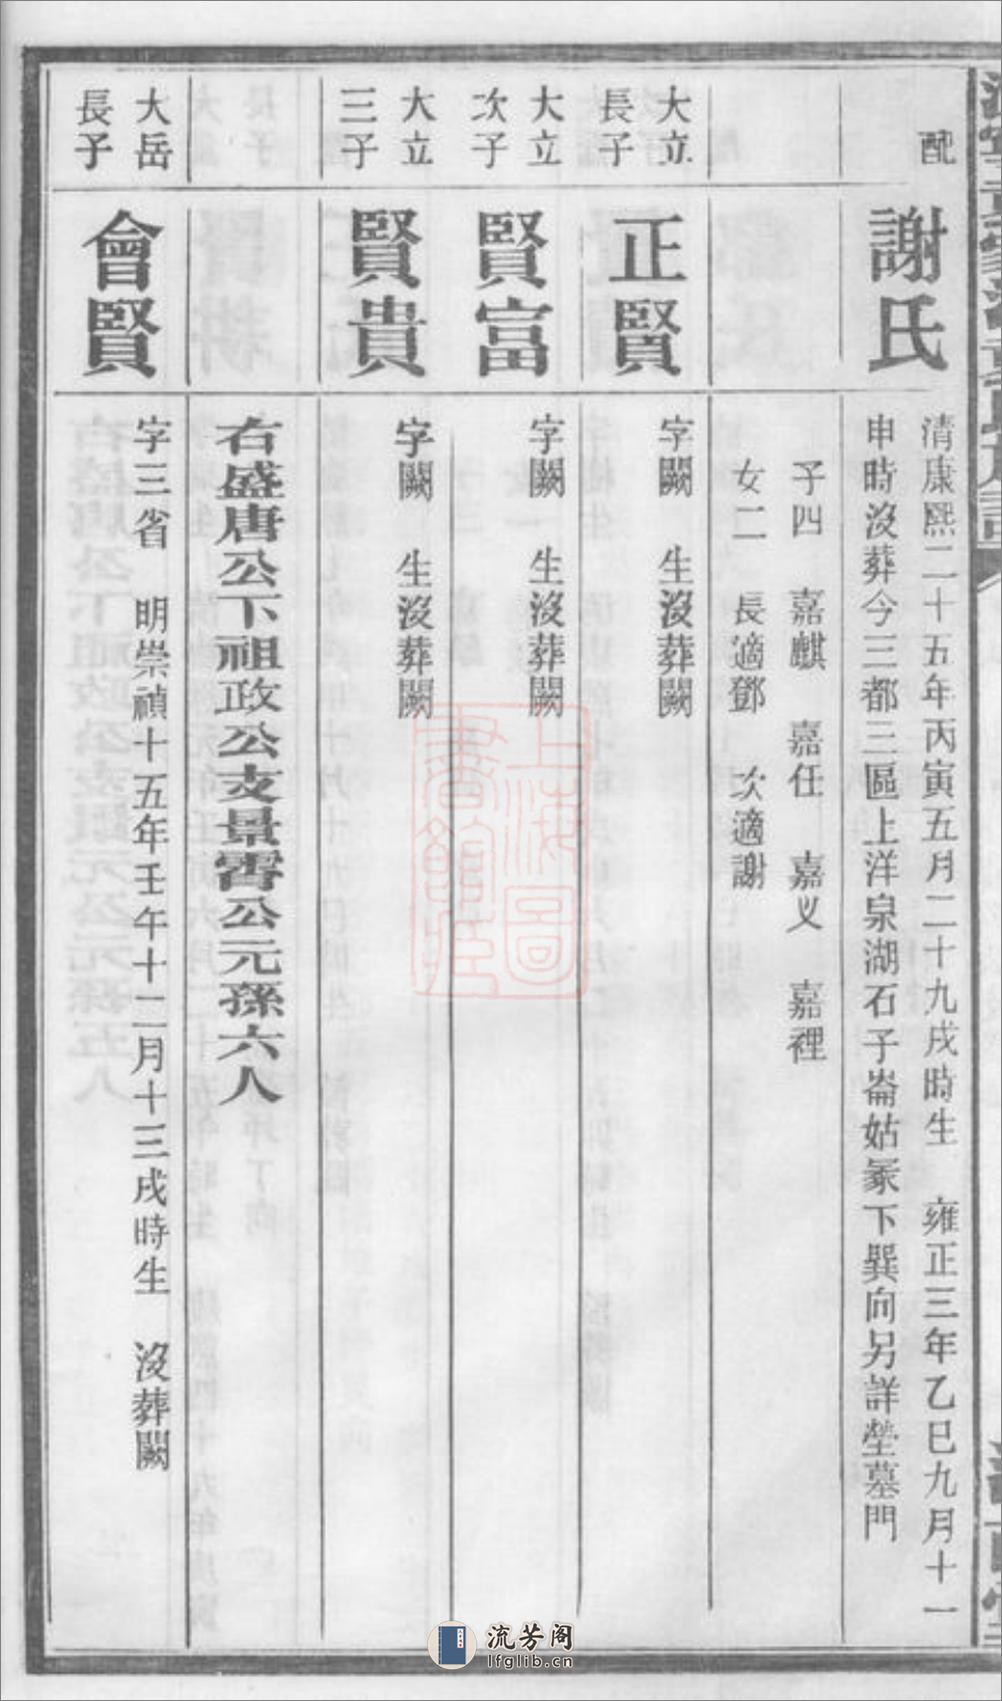 配
謝氏
清康熙二十五年丙寅五月二十九戌時生 雍正三年乙巳九月十一
申時沒葬今三都三區上洋泉湖石子崙姑冢下巽向另詳塋墓門
子四 嘉麒 嘉任 嘉义 嘉裡
女二 長適鄧 次適謝
大立
長子
正賢
字闕 生沒葬闕
大立
次子
賢富
字闕 生沒葬闕
大立
三子
賢貴
字闕 生沒葬闕
右盛唐公下祖政公支景霄公元孫六人
大岳
長子
會賢
字三省 明崇禎十五年壬午十二月十三戌時生 沒葬闕
上海圖
書館藏
流芳阁
lfglib.cn